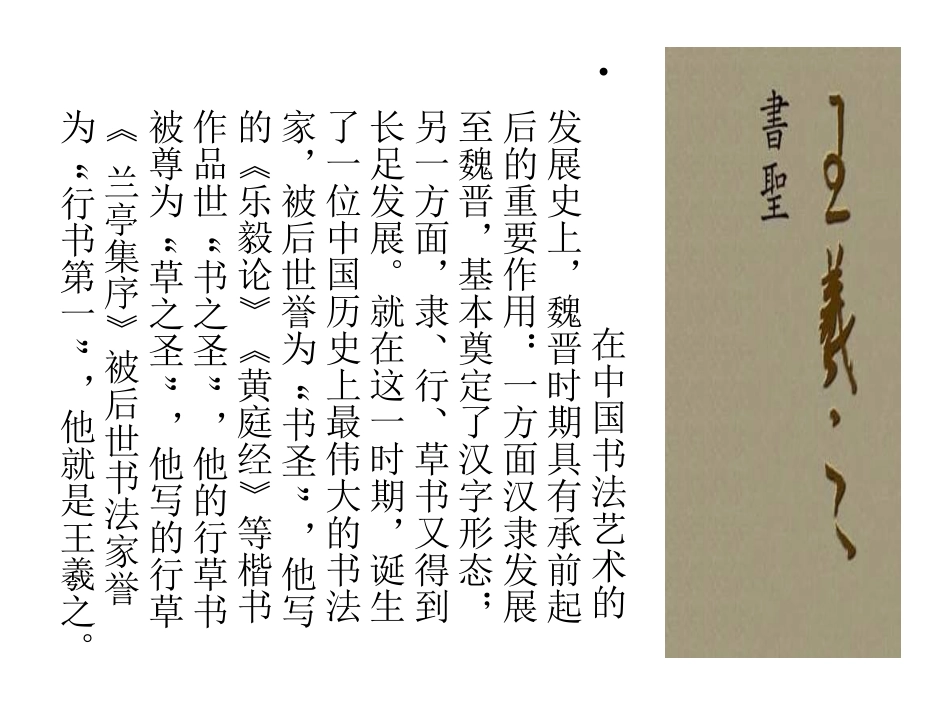 王羲之
書聖
• 在中国书法艺术的
发展史上，魏晋时期具有承前起
后的重要作用：一方面汉隶发展
至魏晋，基本奠定了汉字形态；
另一方面，隶、行、草书又得到
长足发展。就在这一时期，诞生
了一位中国历史上最伟大的书法
家，被后世誉为“书圣”，他写
的《乐毅论》《黄庭经》等楷书
作品世“书之圣”，他的行草书
被尊为“草之圣”，他写的行草
《 兰亭集序》被后世书法家誉
为“行书第一”，他就是王羲之。